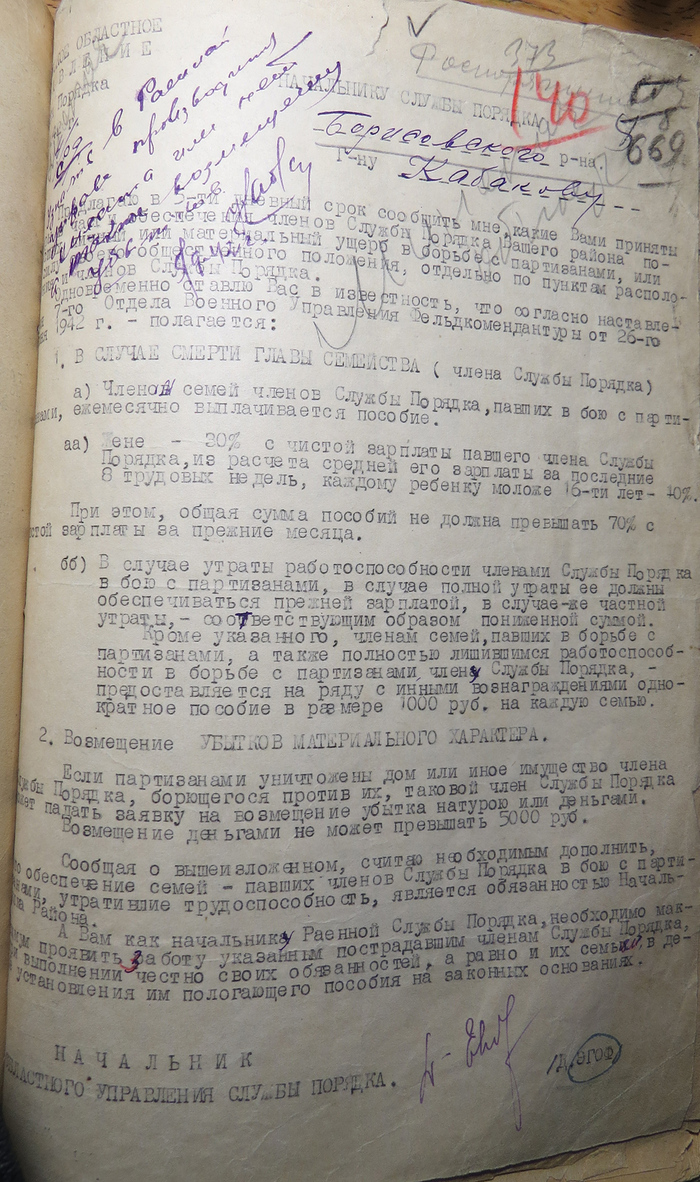 373
140
669
ОЕ ОБЛАСТНОЕ
ВЛЕНИЕ
Порядка
НАЧАЛЬНИКУ СЛУЖБЫ ПОРЯДКА
Борисовского р-на.
Г-ну Кабакову
в 5-ти дневный срок сообщить мне, какие Вами приняты
обеспечения членов Службы Порядка Вашего района по-
или материальный ущерб в борьбе с партизанами, или
положения, отдельно по пунктам располо-
членов Службы Порядка.
Одновременно ставлю Вас в известность, что согласно наставле-
7-го Отдела Военного Управления Фельдкомендантуры от 26-го
1942 г. - полагается:
1. В СЛУЧАЕ СМЕРТИ ГЛАВЫ СЕМЕЙСТВА ( члена Службы Порядка)
а) Членов семей членов Службы Порядка, павших в бою с парти-
нами, ежемесячно выплачивается пособие.
аа) Жене - 30% с чистой зарплаты павшего члена Службы
Порядка, из расчета средней его зарплаты за последние
8 трудовых недель, каждому ребенку моложе 16-ти лет- 10%.
При этом, общая сумма пособий не должна превышать 70% с
стой зарплаты за прежние месяца.
бб) В случае утраты работоспособности членами Службы Порядка
в бою с партизанами, в случае полной утраты ее должны
обеспечиваться прежней зарплатой, в случае-же частной
утраты,- соответствующим образом пониженной суммой.
Кроме указанного, членам семей, павших в борьбе с
партизанами, а также полностью лишившимся работоспособ-
ности в борьбе с партизанами члену Службы Порядка, -
предоставляется на ряду с инными вознаграждениями одно-
кратное пособие в размере 1000 руб. на каждую семью.
2. Возмещение УБЫТКОВ МАТЕРИАЛЬНОГО ХАРАКТЕРА.
Если партизанами уничтожены дом или иное имущество члена
ужбы Порядка, борющегося против их, таковой член Службы Порядка
жет падать заявку на возмещение убытка натурою или деньгами.
Возмещение деньгами не может превышать 5000 руб.
Сообщая о вышеизложенном, считаю необходимым дополнить,
о обеспечение семей - павших членов Службы Порядка в бою с парти-
нами, утратившие трудоспособность, является обязанностью Началь-
ка Района.
А Вам как начальнику Раенной Службы Порядка, необходимо мак-
мум проявить заботу указанным пострадавшим членам Службы Порядка,
и выполнении честно своих обязанностей, а равно и их семью, в де-
установления им пологающего пособия на законных основаниях.
НАЧАЛЬНИК
ОБЛАСТНОГО УПРАВЛЕНИЯ СЛУЖБЫ ПОРЯДКА.
/Д.ЭГОФ/